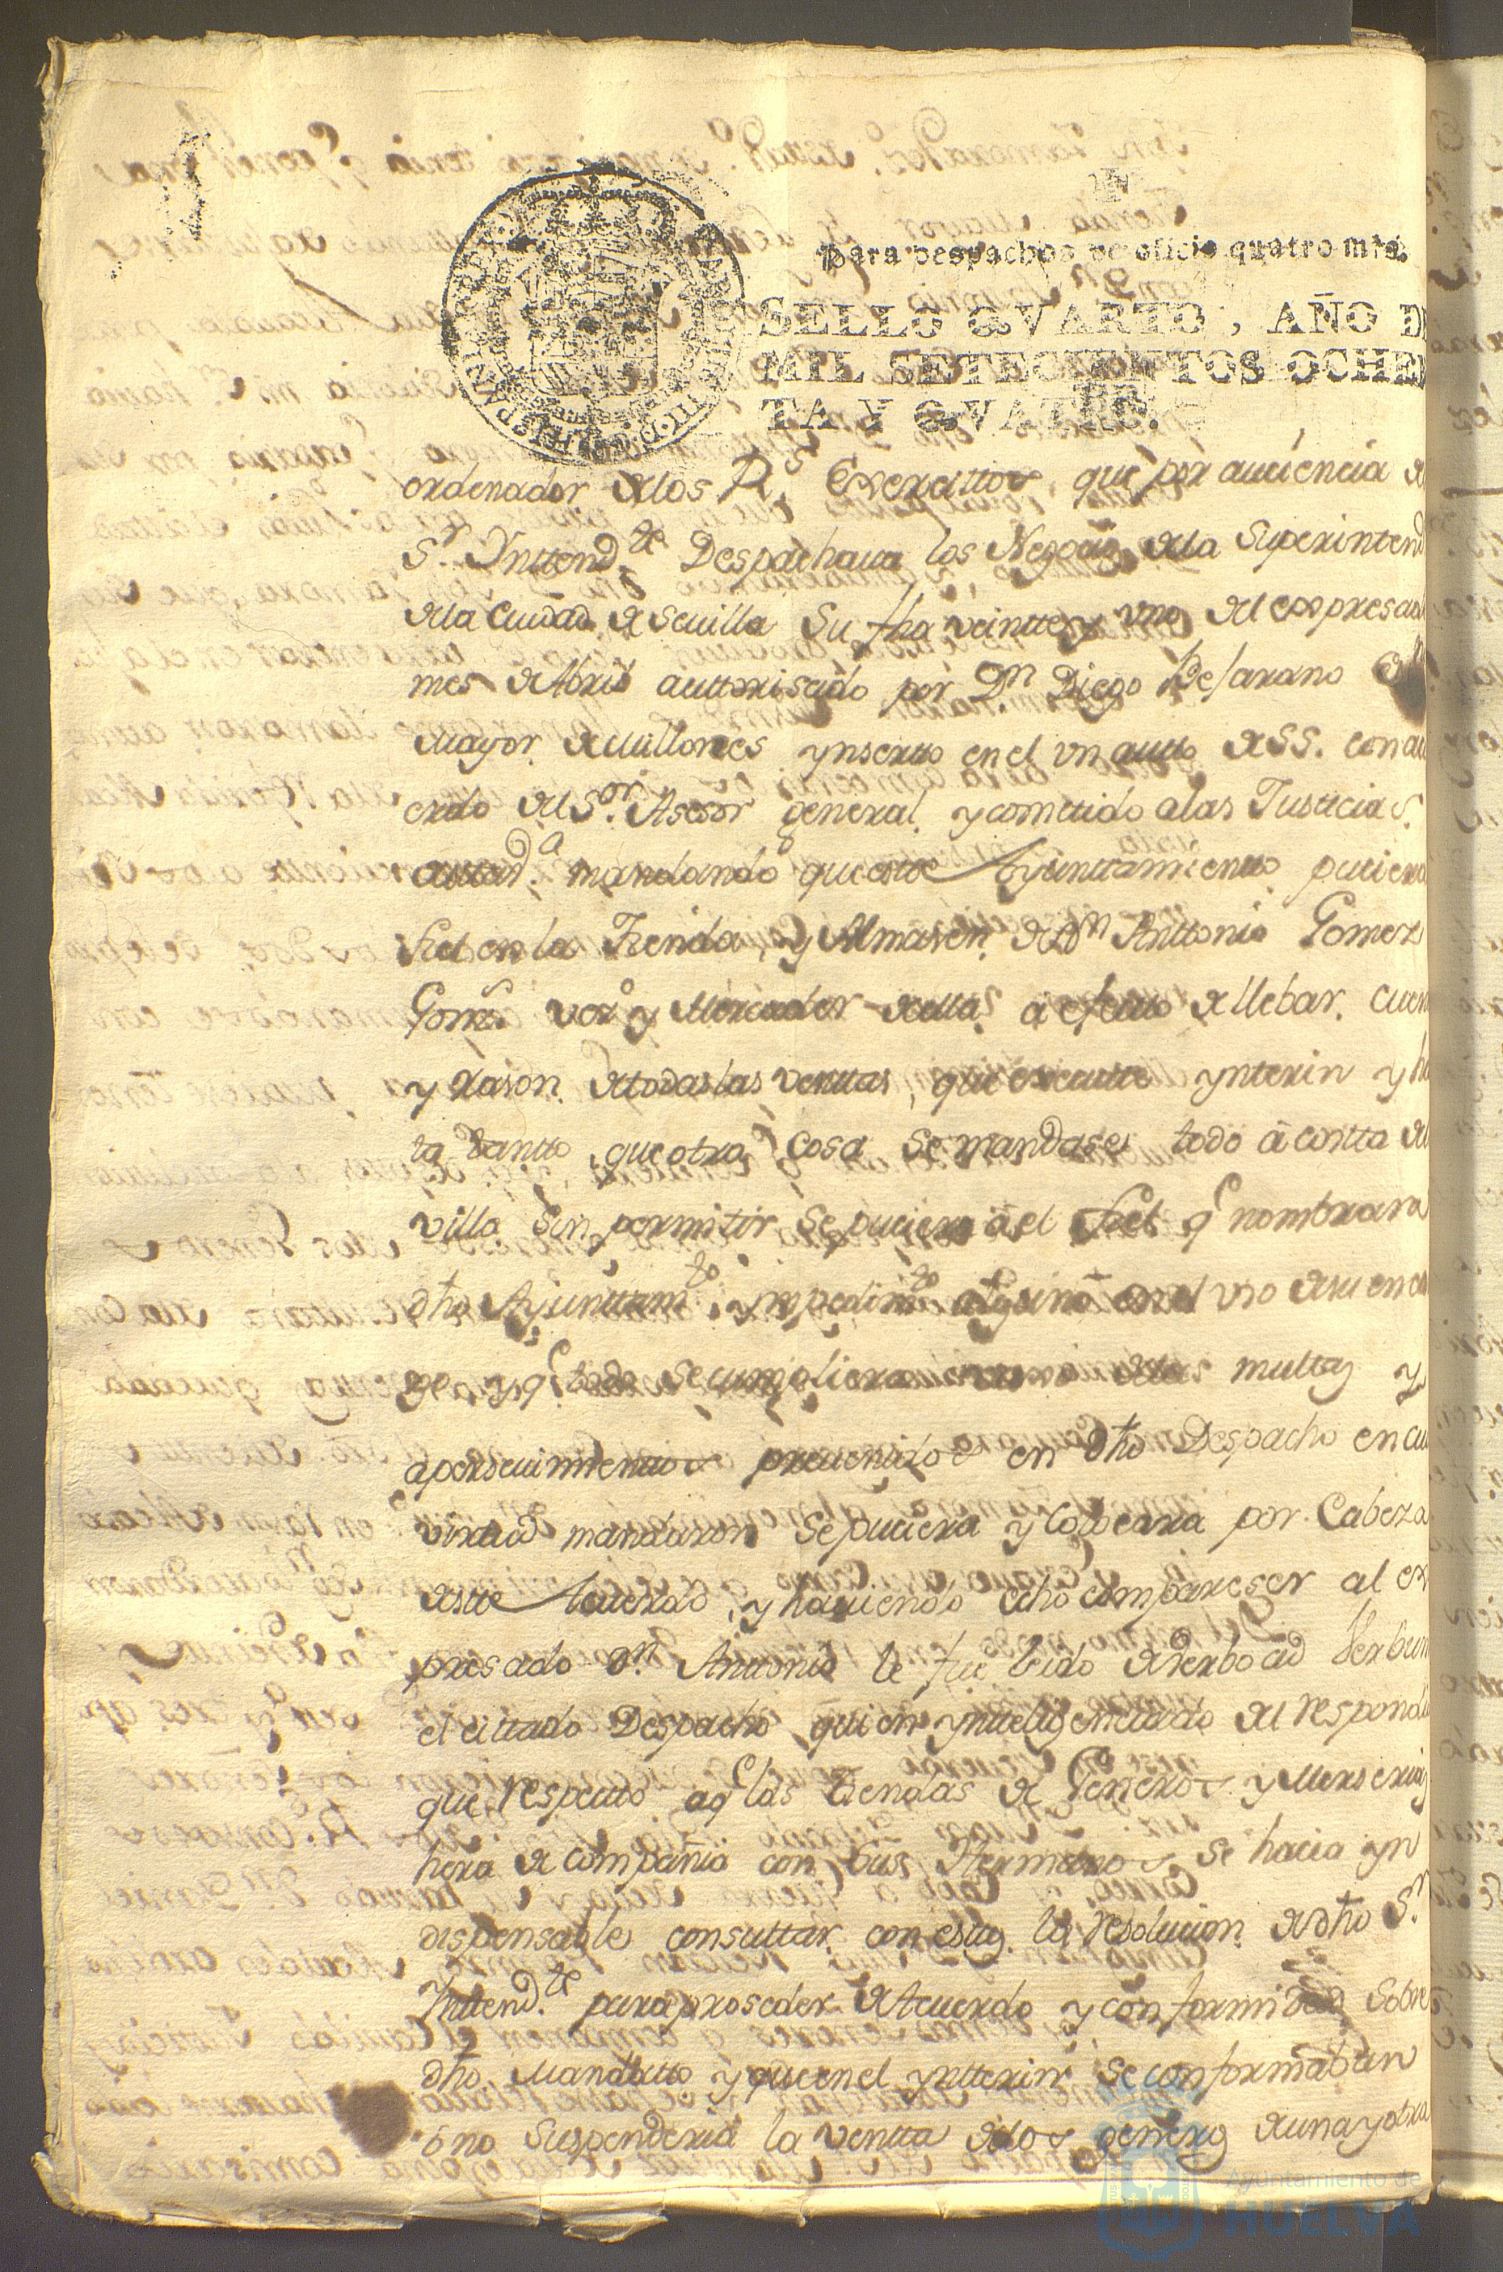 Para despachos de oficio quatro mrs.
SELLO QVARTO, AÑO D
MIL SETECIENTOS OCHEN
TA Y QVATRO.
ordenador de los Rs. Exercittos, que por auciencia de
Sr. Ynttend.te Despachaua los Negocios de la Superintend
de la Ciudad de Seuilla Su fha veintte y uno del expresad
mes de Abril auttorisado por Dn Diego Befarano
mayor de Millones ynserto en el vn autto de SS. con acu
erdo del Sor. Asesor general, y cometido a las Justicias
mandando que este Ayunttamiento puciera
fiel en la Tienda, y Almasen de Dn Anttonio Gomez
y Mercader de ella a efecto de llebar cuen
y rason de todas las venttas, que executte ynterin y ha
ta tantto que otra cosa se mandase todo a contta de
villa Sin permitir se puciera a el fiel q nombrara
dho Ayunttam.to ympedim.to alguno en el vso de su enca
y q todo se cumpliera las multas y
aperseuimienttos preuenidos en dho Despacho en cu
virtud mandaron se puciera y colocara por Cabeza
deste Acuerdo, y hauiendo echo compareser al ex
presado Dn Anttonio le fue leido de verbo ad verbum
el cittado Despacho quien ynttelig enciado del respondi
que respectto a q las tiendas de Generos y Merserias
hera de compañia con sus Hermanos se hacia yn
dispensable consulttar con estos la resolucion de dho Sr
Inttend.te para proseder de Acuerdo y conformidad Sobre
dho Mandatto y que en el yntterin se conformaban
ó no suspenderia la ventta de los generos de una y otra
Ayuntamiento de
HUELVA